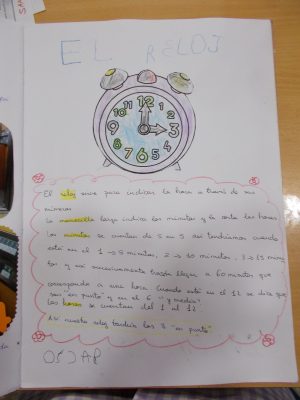 EL RELOJ
12
1
2
3
4
5
6
7
8
9
10
11
El reloj sirve para indicar la hora a través de sus
números
La manecilla larga indica los minutos y la corta las horas
los minutos se cuentan de 5 en 5 así tendríamos cuando
esté en el 1 → 5 minutos, 2 → 10 minutos, 3 → 15 minu
tos y así sucesivamente hasta llegar a 60 minutos que
corresponde a una hora. Cuando esté en el 12 se dice que
son "en punto" y en el 6 "y media".
Las horas se cuentan del 1 al 12
Así nuestro reloj tendría las 3 "en punto"